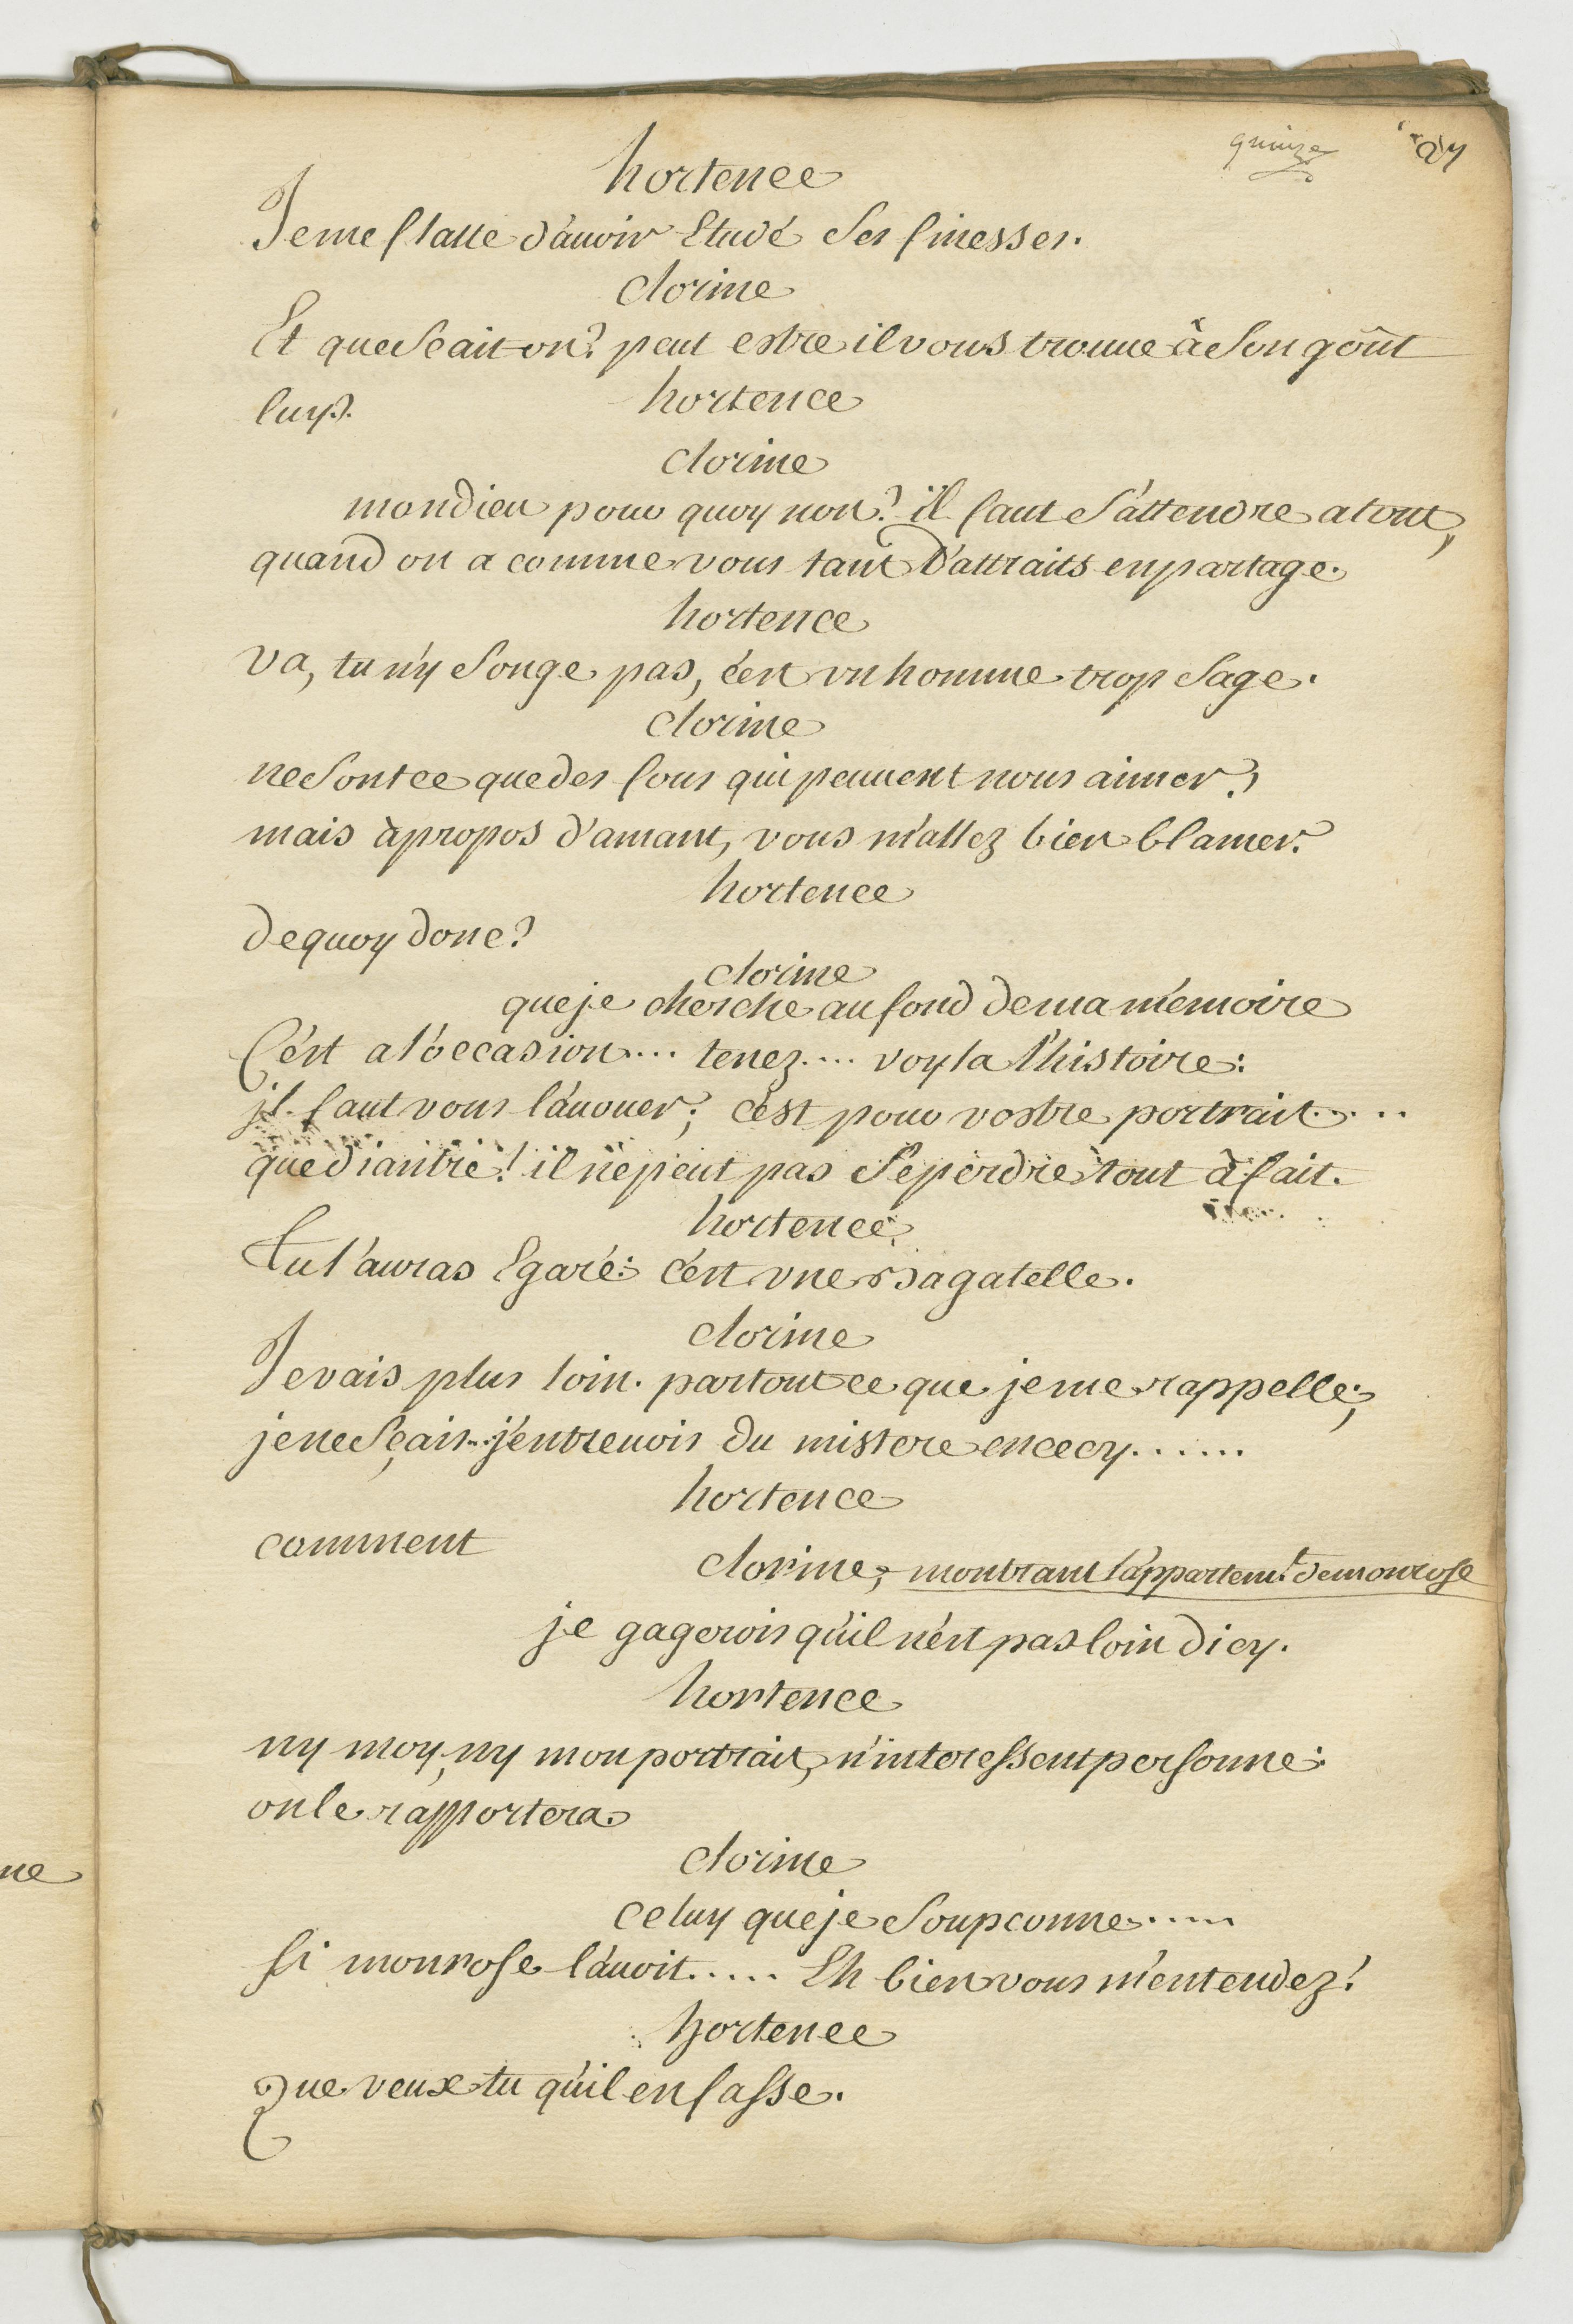 quinze
hortence
Je me flatte d'auoir Etudé Ses finesses.
clorine
Et que Scait-on? peut estre il vous trouue à Son goût
hortence
luy?.
clorine
mon dieu pour quoy non? il faut S'attendre a tout,
quand on a comme vous tant D'attraits en partage.
hortence
va, tu n'y Songe pas, c'est vn homme trop Sage.
clorine
ne Sont ce que des fous qui peuuent nous aimer?
mais àpropos d'amant, vous m'allez bien blamer.
hortence
de quoy donc?
clorine
que je cherche au fond de ma mémoire
C'est a l'occasion... tenez.... voyla l'histoire:
jl faut vous l'auouer; c'est pour vostre portrait.....
que diantre! il ne peut pas Se perdre tout à fait.
hortence
tu l'auras Egaré: c'est vne Bagatelle.
clorine
Je vais plus loin. par tout ce que je me rappelle,
je ne Sçais... j'entreuois du mistere en cecy......
hortence
comment
clorine, montrant l'appartemt. de monrose
je gagerois qu'il n'est pas loin d'icy.
hortence
ny moy, ny mon portrait, n'interessent personne:
on le rapportera.
clorine
celuy que je Soupconne.....
Si monrose l'auoit..... Eh bien vous m'entendez!
hortence
Que veux tu qu'il en fasse.
ne